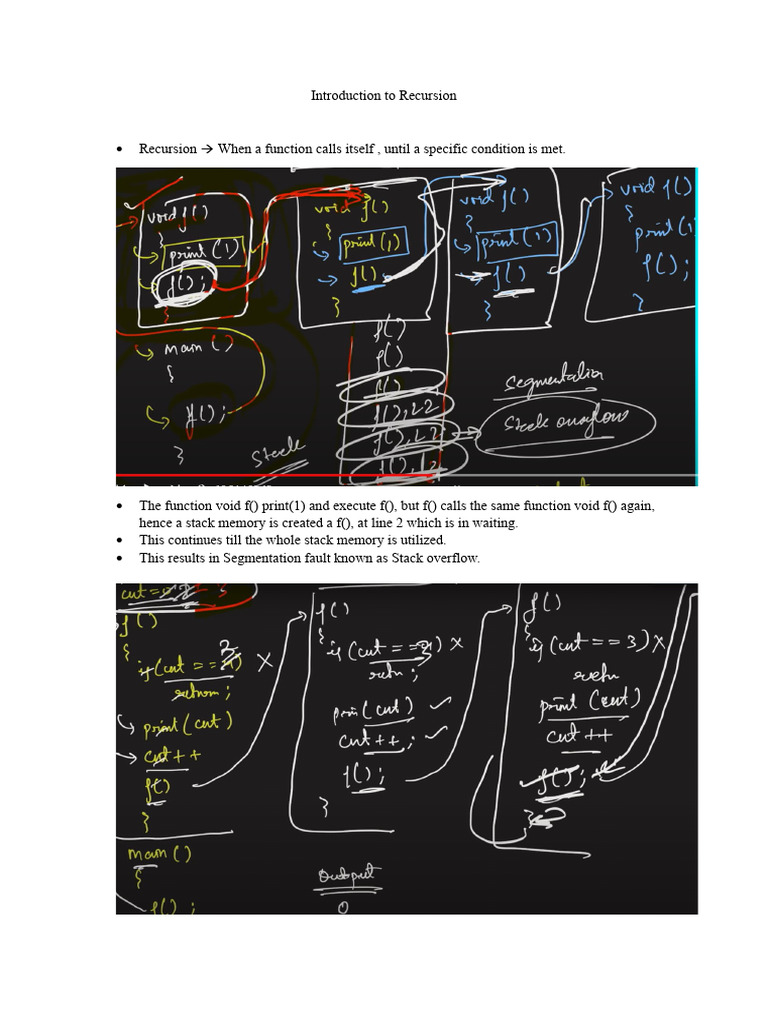 Introduction to Recursion
• Recursion → When a function calls itself , until a specific condition is met.
void f()
{
print(1)
f();
}
main()
{
f();
}
void f()
{
print(1)
f()
}
void f()
{
print(1)
f()
}
void f()
{
print(1
f();
}
f()
f()
f()
f(), L2
f(), L2
f(), L2
stack
Segmentation
Stack overflow
• The function void f() print(1) and execute f(), but f() calls the same function void f() again,
hence a stack memory is created a f(), at line 2 which is in waiting.
• This continues till the whole stack memory is utilized.
• This results in Segmentation fault known as Stack overflow.
3
f()
{
if(cnt == 3) x
return;
print(cnt)
cnt++
f()
}
main()
{
f();
f()
{
if(cnt == 3) x
retn;
prin(cnt)
cnt++;
f();
}
f()
{
if(cnt == 3) x
retn
print(cnt)
cnt++
f();
}
Output
0